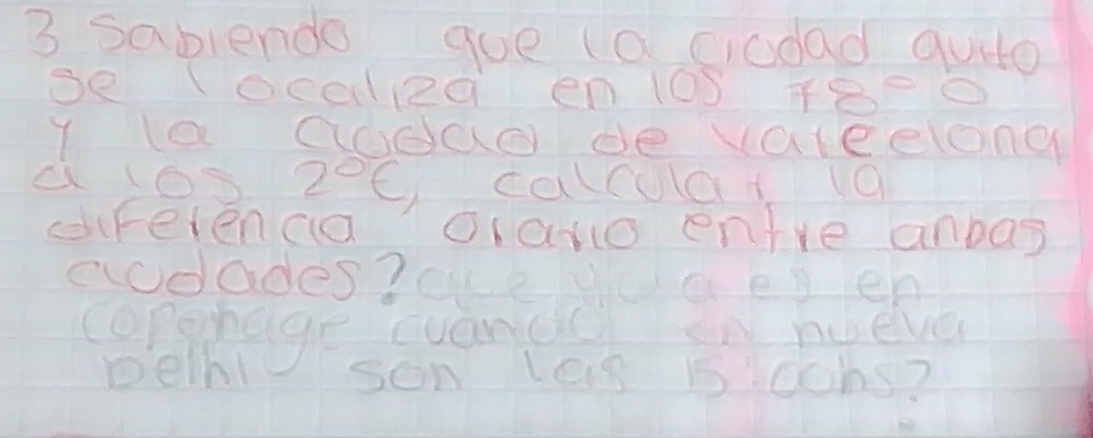 3 Sabiendo que la ciodad quito
se localiza en los 78° O
y la ciudad de vareelona
a los 2°E, calcular la
diferencia orario entre anbas
ciudades? que hora es en
copenhage cuando en nueva
Delhi son las 15:00hs?